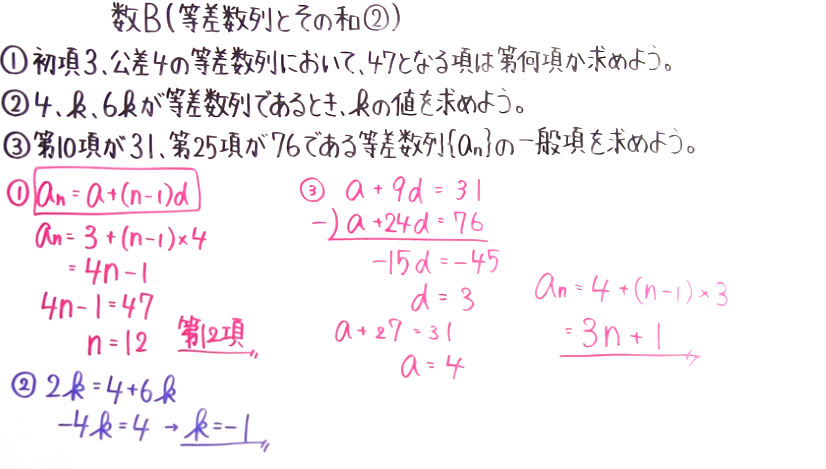 数B(等差数列とその和②)
①初項3、公差4の等差数列において、47となる項は第何項か求めよう。
②4、k、6kが等差数列であるとき、kの値を求めよう。
③第10項が31、第25項が76である等差数列{an}の一般項を求めよう。
① an = a+(n-1)d
an = 3+(n-1)×4
= 4n-1
4n-1=47
n=12 第12項
② 2k=4+6k
-4k=4 → k=-1
③ a+9d=31
-) a+24d=76
-15d=-45
d=3
a+27=31
a=4
an=4+(n-1)×3
=3n+1